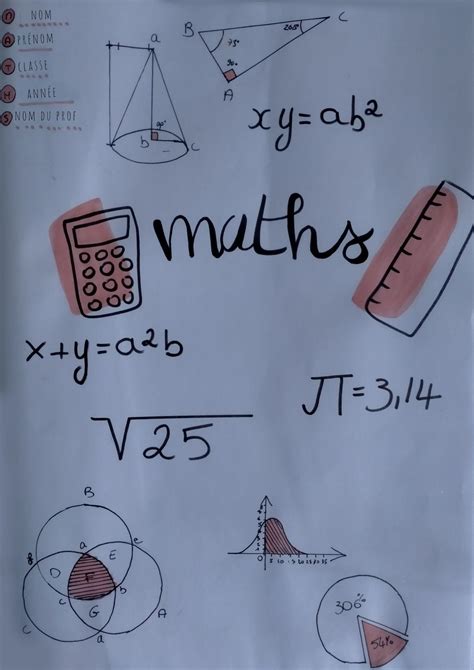 M NOM
A PRÉNOM
T CLASSE
H ANNÉE
S NOM DU PROF
a
90°
b
c
B
C
75°
90°
A
xy=ab²
maths
x+y=a²b
π=3,14
√25
B
a
e
D
E
F
c
b
G
C
A
a
306%
54%